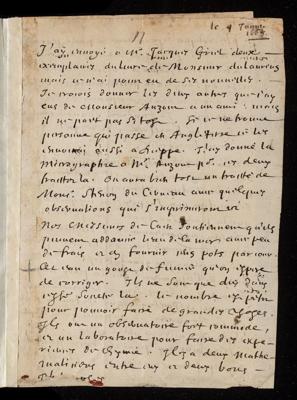 le 9
J'ay envoyé a Mr. Jacques deux
exemplaires du livre de Monsieur du Laurens
mais je n'ai point eu de ses nouvelles.
Je croiois donner les deux autres que j'ay
eus de Monsieur Auzout a un ami: mais
il ne part pas si tost. Si je ne trouve
personne qui passe en Angleterre je les
envoirai aussi a Dieppe. J'ay donné la
Micrographie a Mr. Auzout les deux
traitez la. On aura bien tost un traité de
Mons. Stenon du Cerveau avec quelques
observations qui s'imprimeront ici
Nos Messieurs de Caen soutiennent qu'ils
peuvent addoucir l'eau de la mer avec peu
de frais, et en fournir plus
de corriger. Ils ne sont que dix dans
le nombre
pour pouvoir faire de grandes choses.
Ils ont un observatoire fort commode,
et un laboratoire pour faire des expe-
riences de Chymie. Il y a deux Mathe-
maticiens entre eux et deux bons